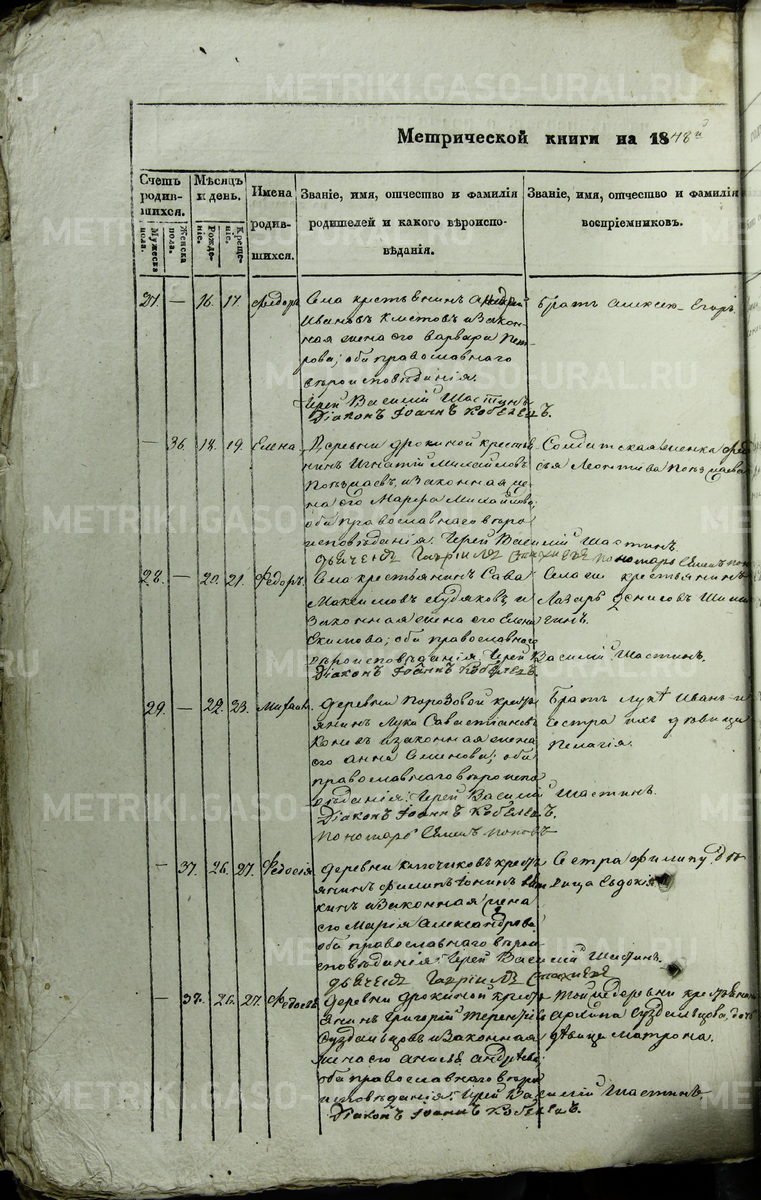 METRIKI.GASO-URAL.RU
Метрической книги на 1848й
Счетъ родив-шихся.
Мужеска пола.
Женска пола.
Мѣсяцъ и день.
Рожде-ніе.
Креще-ніе.
Имена родив-шихся.
Званіе, имя, отчество и фамилія родителей и какого вѣроиспо-вѣданія.
Званіе, имя, отчество и фамилія воспріемниковъ.
27. — 16. 17. Федоръ
Села крестьянинъ Андрей
Ивановъ и закон-
ная жена его Варвара Пет-
рова; оба православнаго
вѣроисповѣданія.
Іерей Василій Шастинъ
Діаконъ Іоаннъ Кобелевъ.
Братъ Алексѣю Егоръ.
— 36. 18. 19. Елена
Деревни Дрокиной крестья-
нинъ Игнатій Михайловъ
и законная же-
на его Марфа Михайлова;
оба православнаго вѣро-
исповѣданія. Іерей Василій Шастинъ
дьячекъ Гавріилъ Пономарь Семенъ Поповъ
Солдатская женка
Леонтьева
28. — 20. 21. Федоръ
Села крестьянинъ Сава
Максимовъ Худяковъ и
законная жена его Елена
Екимова; оба православнаго
вѣроисповѣданія. Іерей Василій Шастинъ.
Діаконъ Іоаннъ Кобелевъ.
Села крестьянинъ
Лазарь Денисовъ
29. — 22. 23. Михаилъ.
Деревни Порозовой кресть-
янинъ Лука Савастіановъ
Коневъ и законная жена
его Анна Семенова; оба
православнаго вѣроиспо-
вѣданія: Іерей Василій Шастинъ.
Діаконъ Іоаннъ Кобелевъ.
Пономарь Семенъ Поповъ
Братъ Лукѣ Иванъ и
сестра ихъ дѣвица
Пелагія.
— 37. 26. 27. Федосія
Деревни Ключиковъ кресть-
янинъ Филипъ
и законная жена
его Марія Александрова
оба православнаго вѣрои-
сповѣданія: Іерей Василій Шастинъ.
дьячекъ Гавріилъ
Сестра Филипу дѣ-
вица Евдокія
— 37. 26. 27. Федосья
Деревни Дрокиной кресть-
янинъ Григорій Терентьевъ
Суздальцовъ и законная
жена его Андреева
оба православнаго вѣро-
исповѣданія: Іерей Василій Шастинъ
Діаконъ Іоаннъ Кобелевъ.
Той же деревни крестьянина
Архипа Суздальцова дочь
дѣвица Матрона.